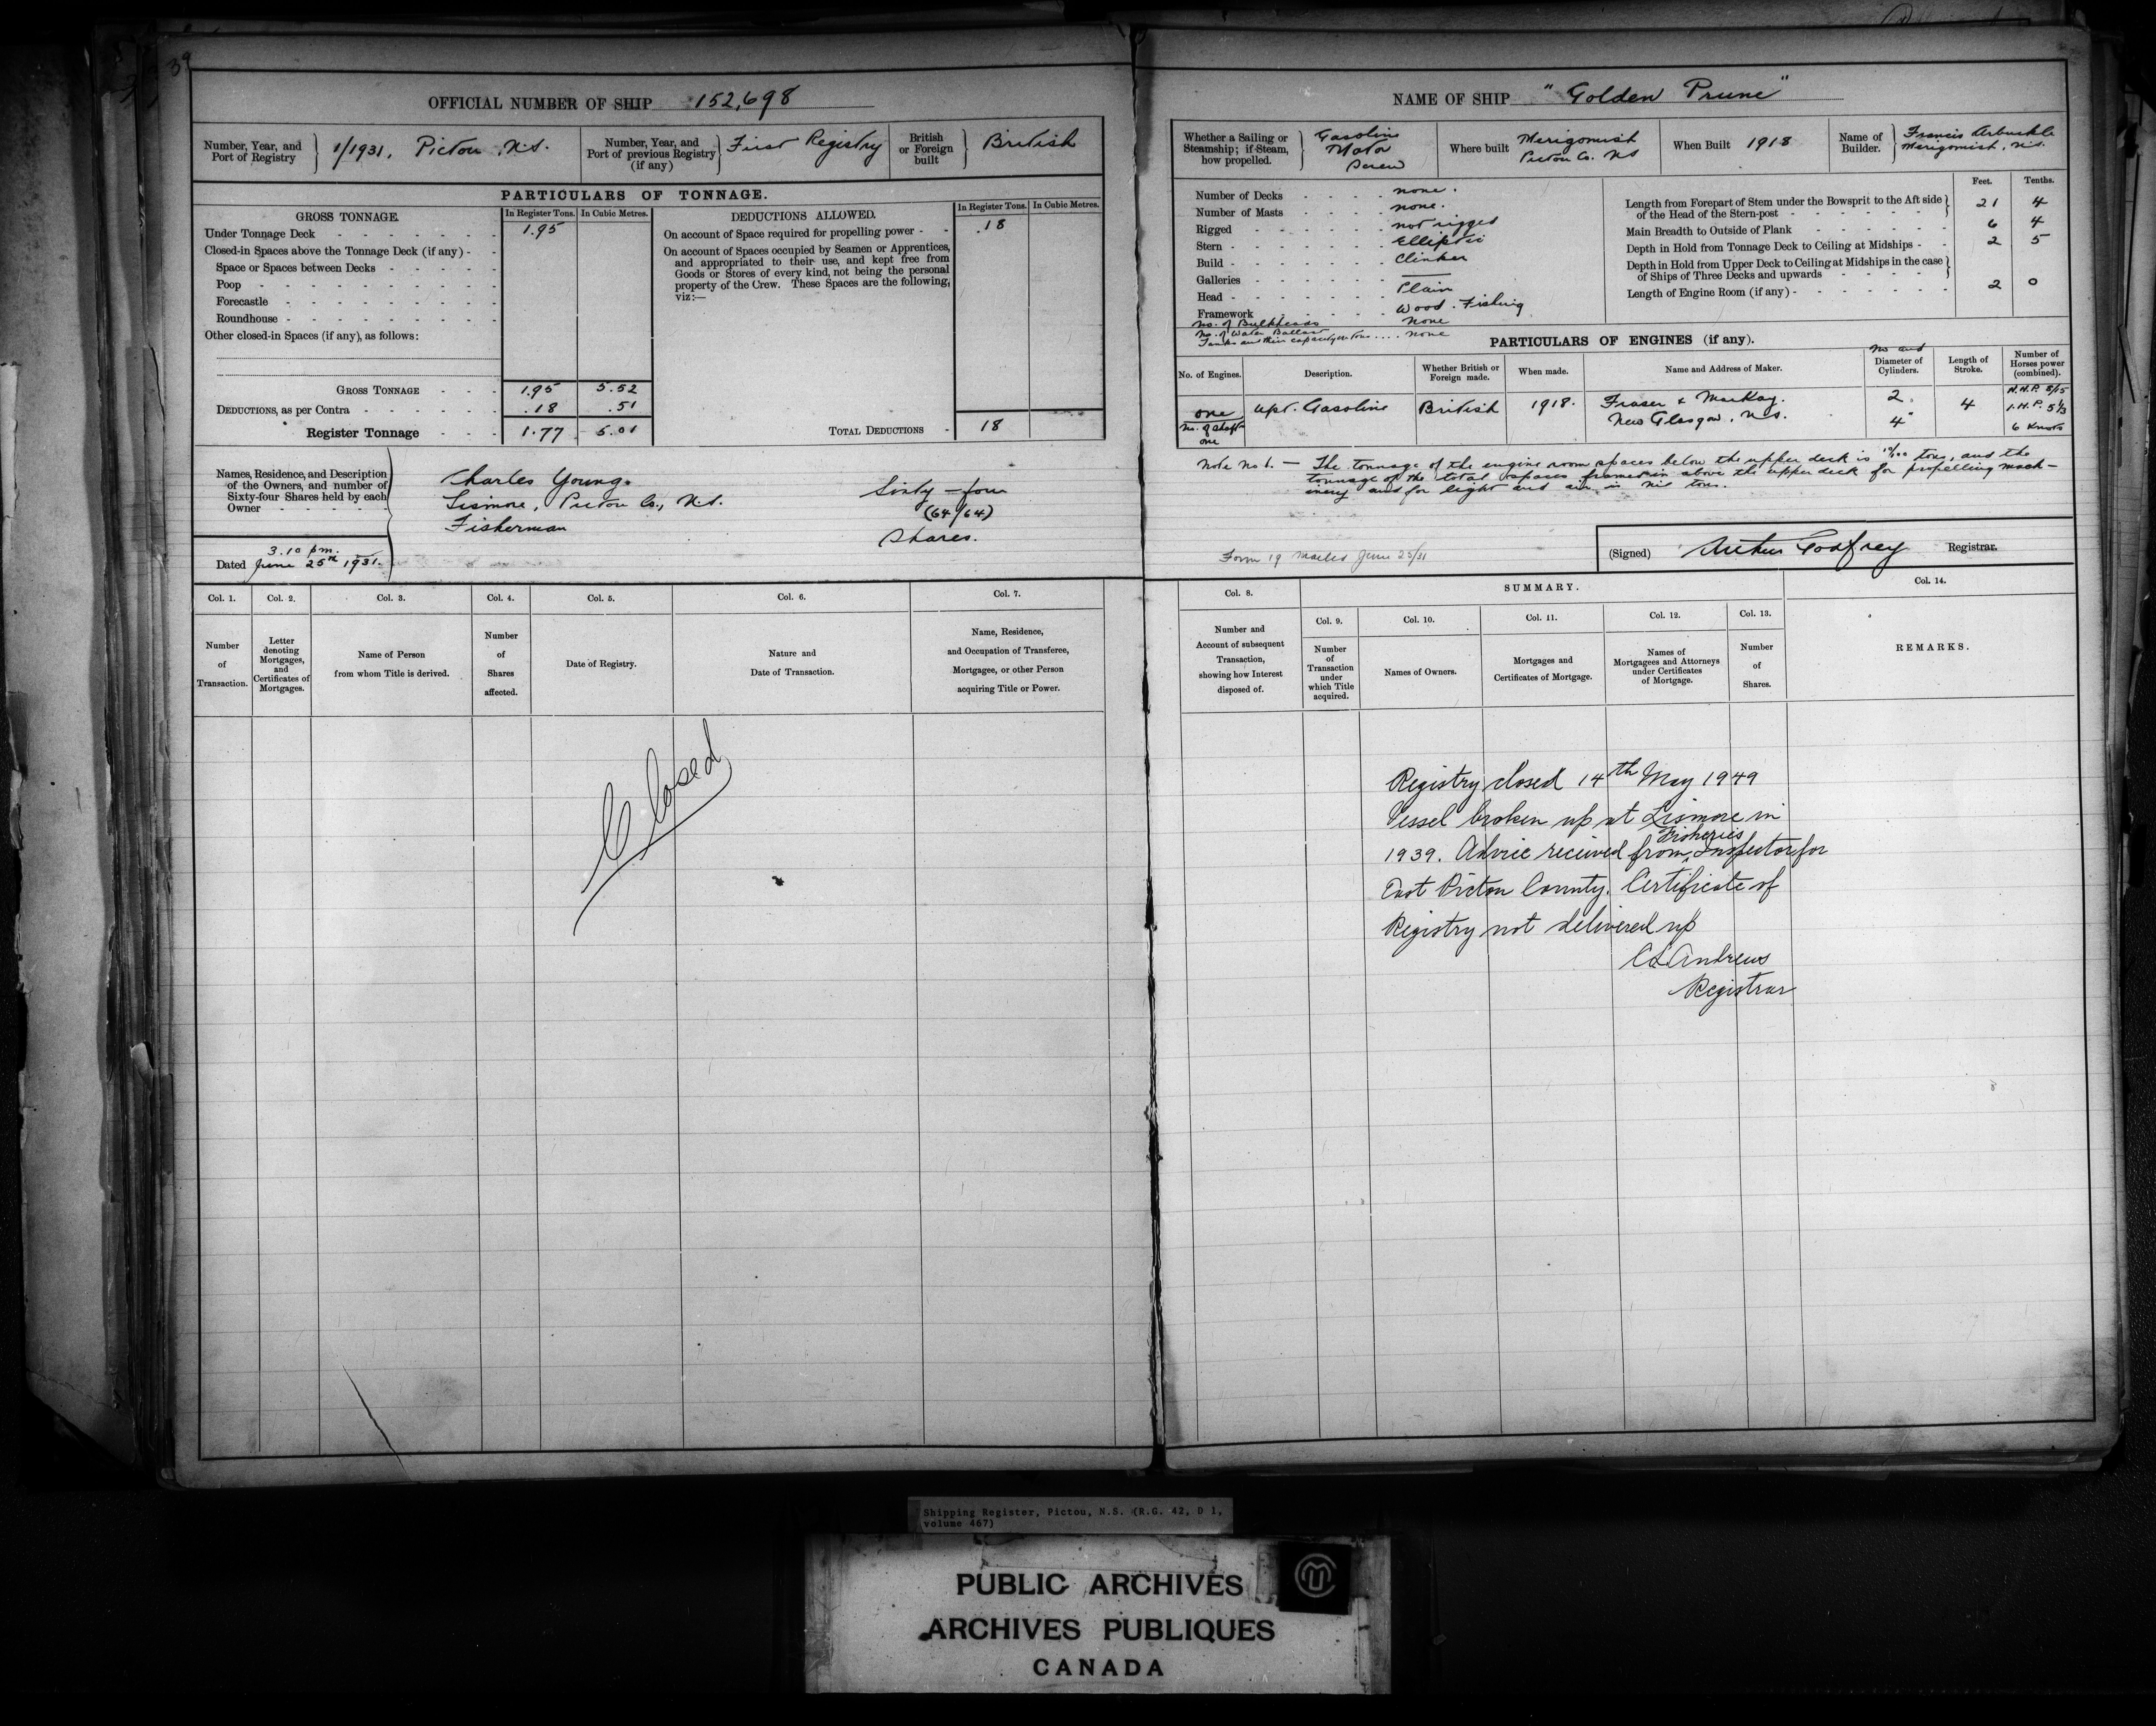 39
OFFICIAL NUMBER OF SHIP 152,698
Number, Year, and Port of Registry
1/1931, Pictou, N.S.
Number, Year, and Port of previous Registry (if any)
First Registry
British or Foreign built
British
PARTICULARS OF TONNAGE.
GROSS TONNAGE.
In Register Tons.
In Cubic Metres.
Under Tonnage Deck 1.95
Closed-in Spaces above the Tonnage Deck (if any)
Space or Spaces between Decks
Poop
Forecastle
Roundhouse
Other closed-in Spaces (if any), as follows:
GROSS TONNAGE 1.95 5.52
DEDUCTIONS, as per Contra .18 .51
Register Tonnage 1.77 5.01
DEDUCTIONS ALLOWED.
In Register Tons.
In Cubic Metres.
On account of Space required for propelling power .18
On account of Spaces occupied by Seamen or Apprentices,
and appropriated to their use, and kept free from
Goods or Stores of every kind, not being the personal
property of the Crew. These Spaces are the following,
viz:—
TOTAL DEDUCTIONS 18
Names, Residence, and Description
of the Owners, and number of
Sixty-four Shares held by each
Owner
Charles Young.
Lismore, Pictou Co., N.S.
Fisherman
Sixty-four
(64/64)
Shares.
3.10 pm.
Dated June 25th 1931.
Col. 1.
Number of Transaction.
Col. 2.
Letter denoting Mortgages, and Certificates of Mortgages.
Col. 3.
Name of Person from whom Title is derived.
Col. 4.
Number of Shares affected.
Col. 5.
Date of Registry.
Col. 6.
Nature and Date of Transaction.
Col. 7.
Name, Residence, and Occupation of Transferee, Mortgagee, or other Person acquiring Title or Power.
Closed
NAME OF SHIP "Golden Prune"
Whether a Sailing or Steamship; if Steam, how propelled.
Gasoline
Motor
Screw
Where built
Merigomish
Pictou Co. NS
When Built 1918
Name of Builder.
Francis Arbuckle
Merigomish, N.S.
Number of Decks none.
Number of Masts none.
Rigged not rigged
Stern Elliptic
Build Clinker
Galleries —
Head Plain
Framework Wood. Fishing
No. of Bulkheads None
No. of Water Ballast
Tanks and their capacity in tons .... none
Feet. Tenths.
Length from Forepart of Stem under the Bowsprit to the Aft side of the Head of the Stern-post 21 4
Main Breadth to Outside of Plank 6 4
Depth in Hold from Tonnage Deck to Ceiling at Midships 2 5
Depth in Hold from Upper Deck to Ceiling at Midships in the case of Ships of Three Decks and upwards
Length of Engine Room (if any) 2 0
PARTICULARS OF ENGINES (if any).
No. of Engines.
Description.
Whether British or Foreign made.
When made.
Name and Address of Maker.
No and
Diameter of Cylinders.
Length of Stroke.
Number of Horses power (combined).
one
No. of Shaft
one
upr. Gasoline
British
1918.
Fraser & MacKay.
New Glasgow, N.S.
2.
4"
4
N.H.P. 8/15
I.H.P. 5 1/3
6 Knots
Note No 1. — The tonnage of the engine room spaces below the upper deck is tons, and the
tonnage of the total spaces framed in above the upper deck for propelling mach-
inery and for light and air is nil tons.
Form 19 mailed June 25/31
(Signed) Arthur Godfrey Registrar.
Col. 8.
Number and Account of subsequent Transaction, showing how Interest disposed of.
SUMMARY.
Col. 9.
Number of Transaction under which Title acquired.
Col. 10.
Names of Owners.
Col. 11.
Mortgages and Certificates of Mortgage.
Col. 12.
Names of Mortgagees and Attorneys under Certificates of Mortgage.
Col. 13.
Number of Shares.
Col. 14.
REMARKS.
Registry closed 14th May 1949
Vessel broken up at Lismore in
1939. Advice received from Fisheries Inspector for
East Pictou County. Certificate of
Registry not delivered up
CL Andrews
Registrar
Shipping Register, Pictou, N.S. (R.G. 42, D 1,
volume 467)
PUBLIC ARCHIVES
ARCHIVES PUBLIQUES
CANADA